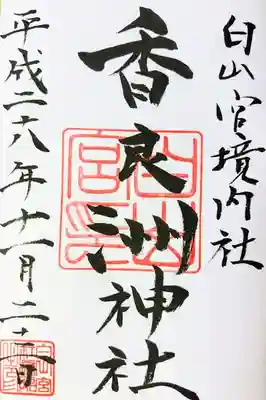 白山宮境内社
香良洲神社
平成二十八年十一月二十三日